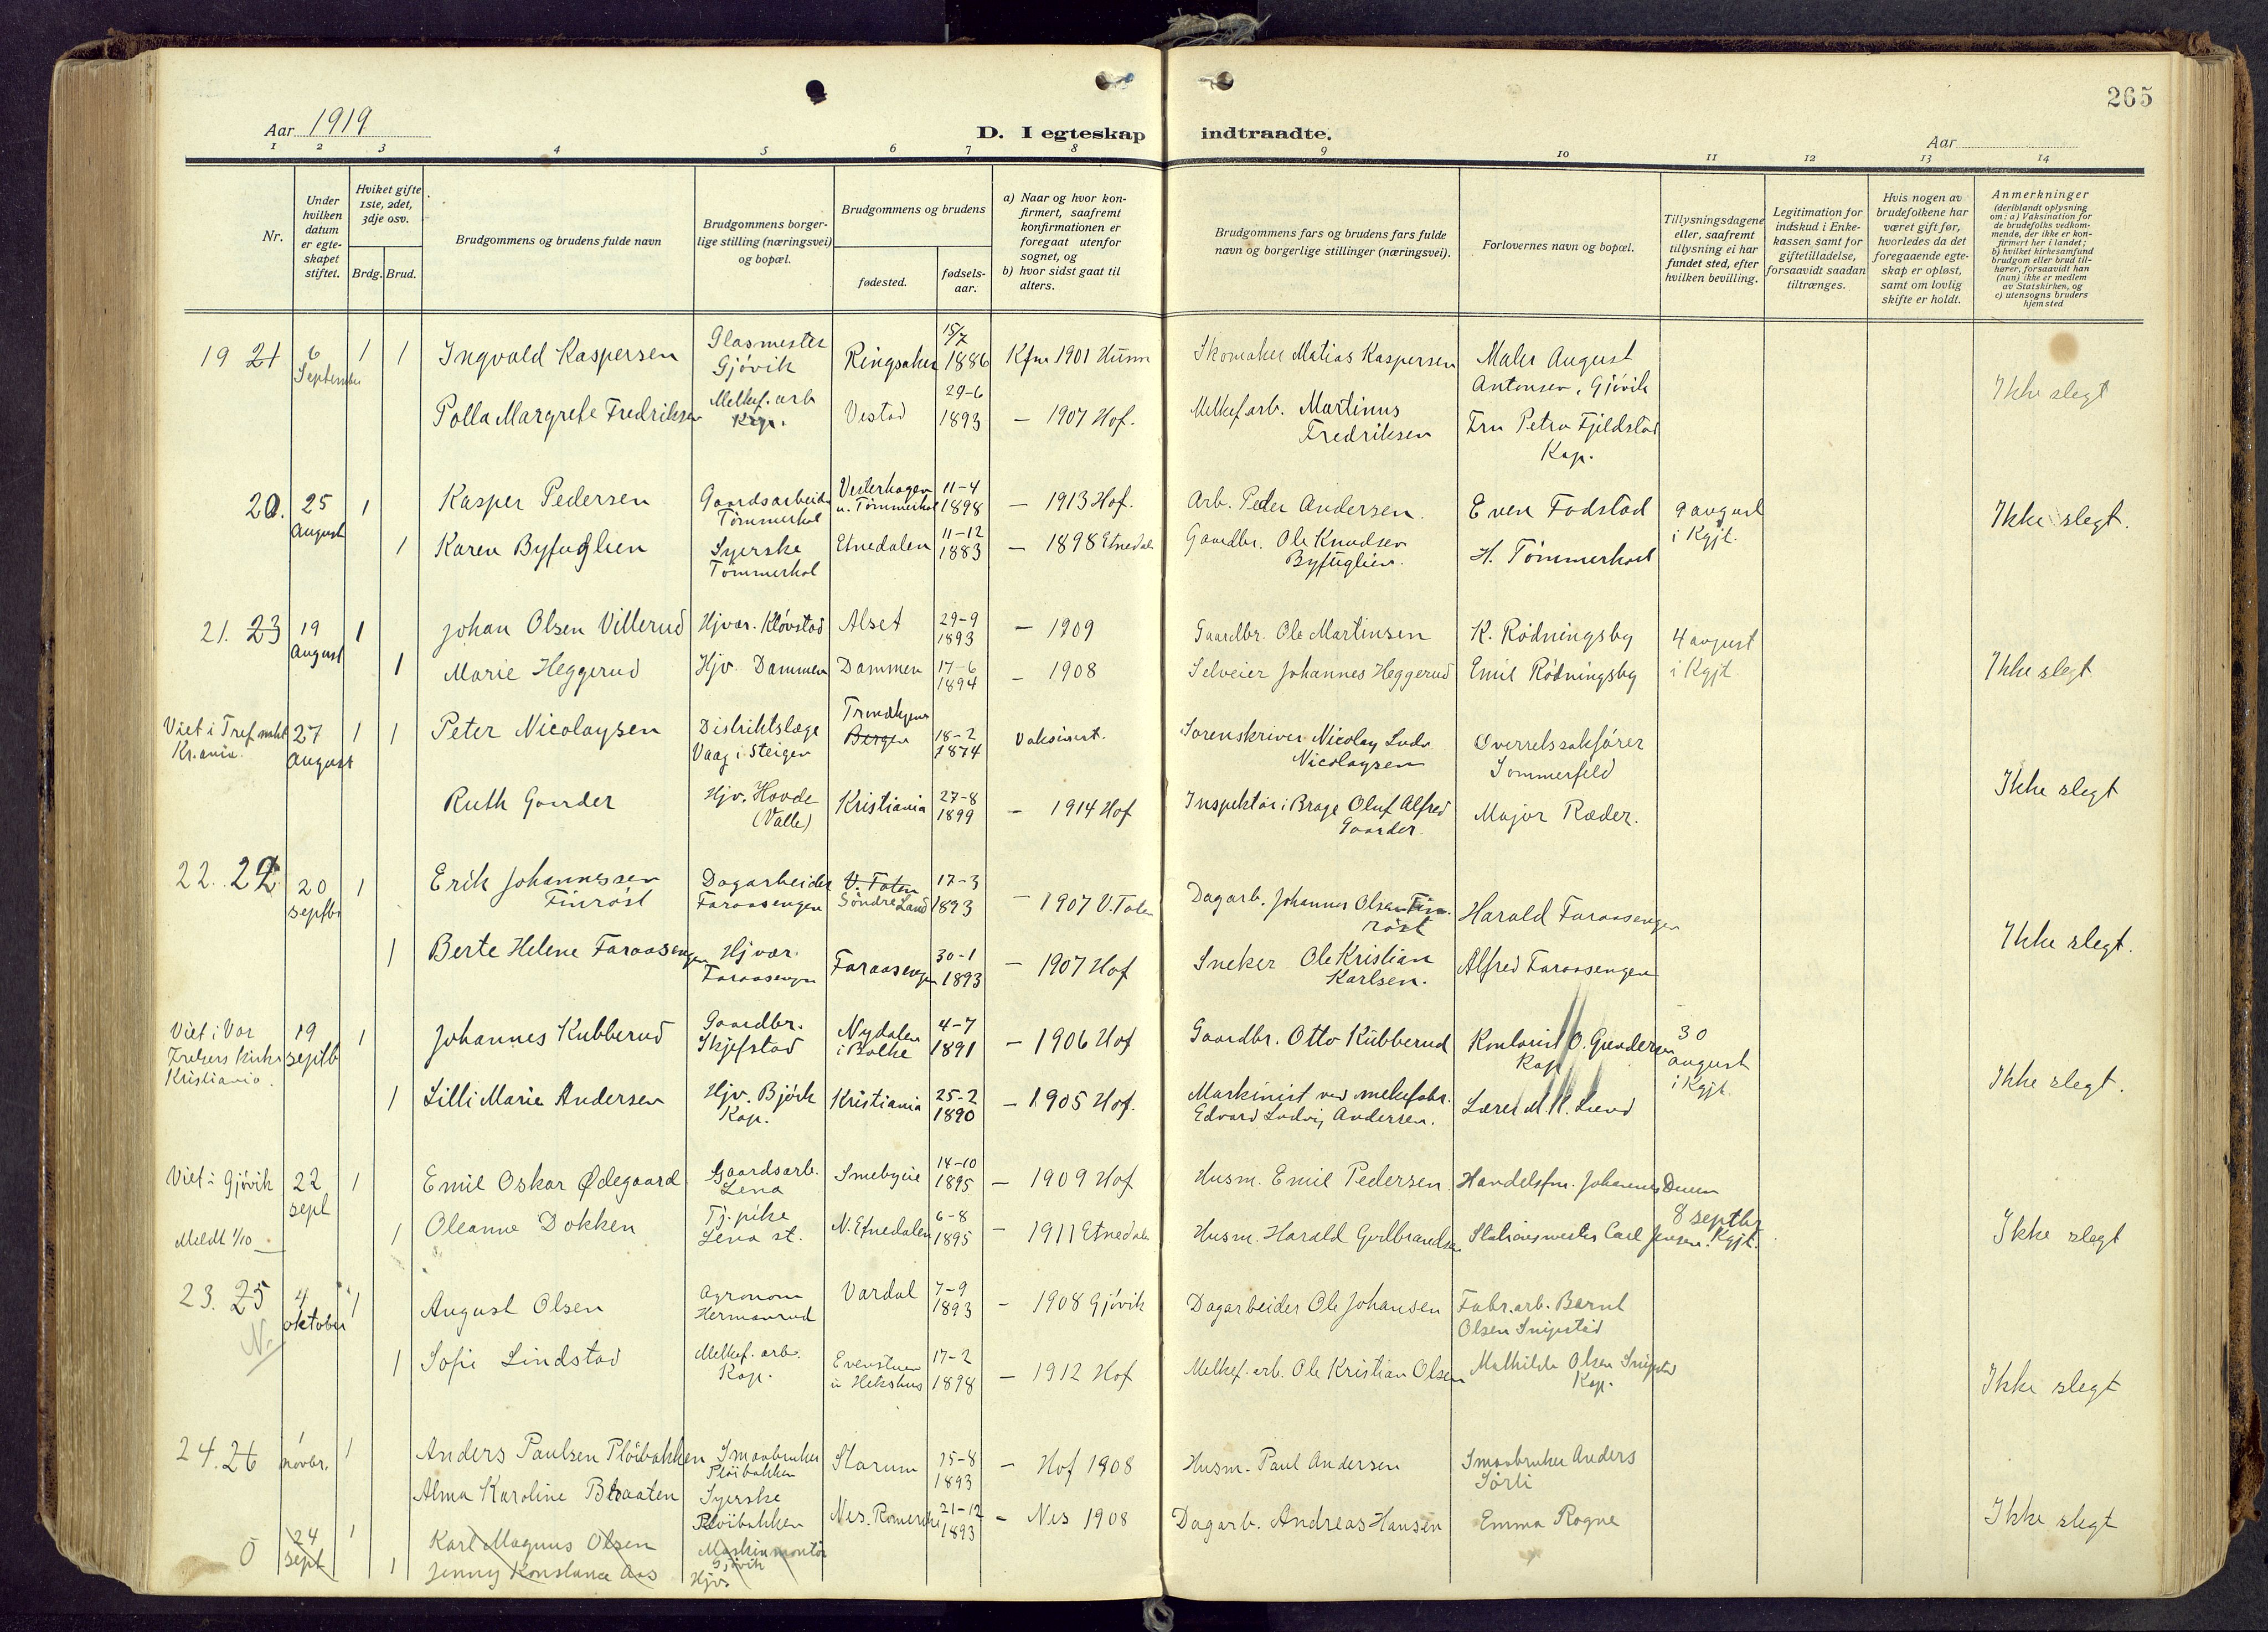 265
Aar 1919
D. I egteskap indtraadte.
Aar
1 2 3 4 5 6 7 8 9 10 11 12 13 14
Nr.
Under hvilken datum er egte-skapet stiftet.
Hviket gifte 1ste, 2det, 3dje osv.
Brdg. Brud.
Brudgommens og brudens fulde navn
Brudgommens borger-lige stilling (næringsvei) og bopæl.
Brudgommens og brudens
fødested.
fødsels-aar.
a) Naar og hvor kon-firmert, saafremt konfirmationen er foregaat utenfor sognet, og
b) hvor sidst gaat til alters.
Brudgommens fars og brudens fars fulde navn og borgerlige stillinger (næringsvei).
Forlovernes navn og bopæl.
Tillysningsdagene eller, saafremt tillysning ei har fundet sted, efter hvilken bevilling.
Legitimation for indskud i Enke-kassen samt for giftetilladelse, forsaavidt saadan tiltrænges.
Hvis nogen av brudefolkene har været gift før, hvorledes da det foregaaende egte-skap er opløst, samt om lovlig skifte er holdt.
Anmerkninger
(deriblandt oplysning om: a) Vaksination for de brudefolks vedkom-mende, der ikke er kon-firmert her i landet; b) hvilket kirkesamfund brudgom eller brud til-hører, forsaavidt han (hun) ikke er medlem av Statskirken, og c) utensogns bruders hjemsted
19 21 6 September 1 1 Ingvald Kaspersen Glasmester Gjøvik Ringsaker 15/7 1886 Kfm 1901 Hunn Skomaker Matias Kaspersen Maler August Antonsen, Gjøvik
Polla Margrete Fredriksen Melkef. arb Kap. Vestad 29-6 1893 – 1907 Hof. Melkef. arb. Martinus Fredriksen Fru Petra Fjeldstad Kap. Ikke slegt
20. 25 August 1 Kasper Pedersen Gaardsarbeider Tømmerhol Vesterhagen u. Tømmerhol 11-4 1898 – 1913 Hof. Arb. Peder Andersen. Even Fodstad 9 august i Kgjt. Ikke slegt.
1 Karen Byfuglien Syerske Tømmerhol Etnedalen 11-12 1883 – 1898 Etnedal Gaardbr. Ole Knudsen Byfuglien. H. Tømmerhol
21. 23 19 August 1 Johan Olsen Villerud Hjvær. Kløvstad Alset 29-9 1893 – 1909 Gaardbr. Ole Martinsen K. Rødningsby 4 august i Kgjt.
1 Marie Heggerud Hjv. Dammen Dammen 17-6 1894 – 1908 Selveier Johannes Heggerud Emil Rødningsby Ikke slegt
Viet i Trefoldht Kr.ania. 27 August 1 1 Peter Nicolaysen Distriktslæge Vaag i Steigen Trondhjem Bergen 18-2 1874 Vaksinert. Sorenskriver Nicolay Ludv. Nicolaysen Overretssakfører Sommerfeld
Ruth Gaarder Hjv. Hovde (Valle) Kristiania 27-8 1899 – 1914 Hof Inspektør i Brage Oluf Alfred Gaarder. Major Ræder. Ikke slegt
22. 24 20 septbr 1 Erik Johannessen Finrøst Dagarbeider Faraasengen V. Toten Søndre Land 17-3 1893 – 1907 V. Toten Dagarb. Johannes Olsen Finrøst Harald Faraasengen
1 Berte Helene Faraasengen Hjvær. Faraasengen Faraasengen 30-1 1893 – 1907 Hof Sneker Ole Kristian Karlsen. Alfred Faraasengen Ikke slegt.
Viet i Vor Frelsers Kirke Kristiania. 19 septb 1 Johannes Kubberud Gaardbr. Skjefstad Nydalen i Bolke 4-7 1891 – 1906 Hof Gaardbr. Otto Kubberud Kontorist O. Gundersen Kap 30 august i Kgjt.
1 Lilli Marie Andersen Hjv. Bjørk Kap. Kristiania 25-2 1890 – 1905 Hof. Maskinist ved melkefabr. Edvard Ludvig Andersen. Lærer M. H. Lund Ikke slegt.
Viet i Gjøvik 22 sept 1 Emil Oskar Ødegaard Gaardsarb. Lena Smebyie 14-10 1895 – 1909 Hof Husm. Emil Pedersen. Handelsfm. Johannes Duen
Meldt 1/10 1 Oleanne Dokken Tj. pike Lena st. N. Etnedalen 6-8 1895 – 1911 Etnedal Husm. Harald Gudbrandsen Stationsmester Carl Jensen. 8 septbr Kgjt. Ikke slegt
23. 25 4 oktober 1 August Olsen Agronom Hermanrud Vardal 7-9 1893 – 1908 Gjøvik Dagarbeider Ole Johansen Fabr. arb. Bernt Olsen Snipstad
N.
1 Sofie Lindstad Melkef. arb. Kap. Evenstuen u Hekshus 17-2 1898 – 1912 Hof Melkef. arb. Ole Kristian Olsen Mathilde Olsen Snipstad Kap. Ikke slegt
24. 26 1 novbr. 1 Anders Paulsen Pløibakken Smaabruker Pløibakken Starum 15-8 1893 – Hof 1908 Husm. Paul Andersen Smaabruker Anders Sørli
Alma Karoline Braaten Syerske Pløibakken Nes. Romerike 21-12 1893 – Nes 1908 Dagarb. Andreas Hansen Emma Rogne Ikke slegt
0 24 sept 1 Karl Magnus Olsen Maskinmontør Gjøvik
1 Jenny Konstance Aas Hjv.